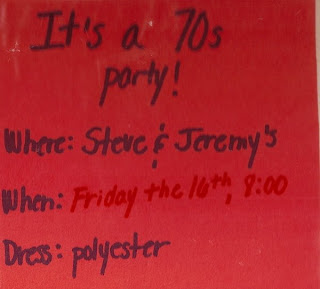 It's a 70s
party!
Where: Steve & Jeremy's
When: Friday the 16th, 8:00
Dress: polyester